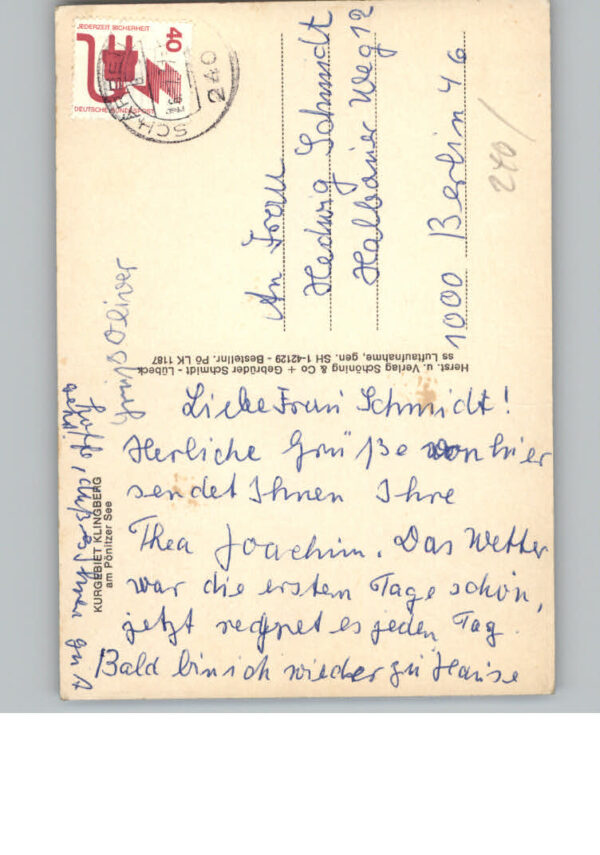 JEDERZEIT SICHERHEIT
40
DEUTSCHE BUNDESPOST
240
An Frau
Hedwig Schmidt
Halbauer Weg 12
1000 Berlin 46
240/
Herst. u. Verlag Schöning & Co + Gebrüder Schmidt - Lübeck
ss Luftaufnahme, gen. SH 1-42129 - Bestellnr. Pö LK 1187
KURGEBIET KLINGBERG
am Pönitzer See
Liebe Frau Schmidt!
Herliche Grüße von hier
sendet Ihnen Ihre
Thea Joachim. Das Wetter
war die ersten Tage schön,
jetzt regnet es jeden Tag.
Bald bin ich wieder zu Hause
Hoffe, daß es Ihnen gut
geht.
Gruß Oliver